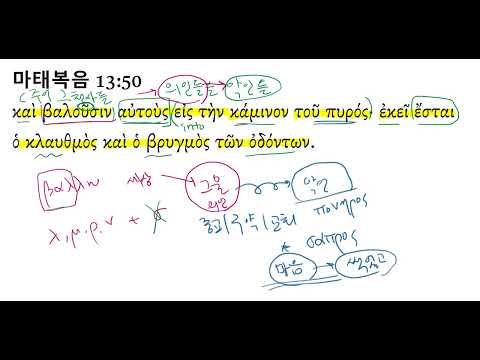 마태복음 13:50
(주의 그 천사들 의인들 악인들
καὶ βαλοῦσιν αὐτοὺς εἰς τὴν κάμινον τοῦ πυρός· ἐκεῖ ἔσται
into
ὁ κλαυθμὸς καὶ ὁ βρυγμὸς τῶν ὀδόντων.
βαλλω 세상 그물 악인
의인 πονηρος
λ, μ, ρ, ν +
σαπρος
마음 썩었고